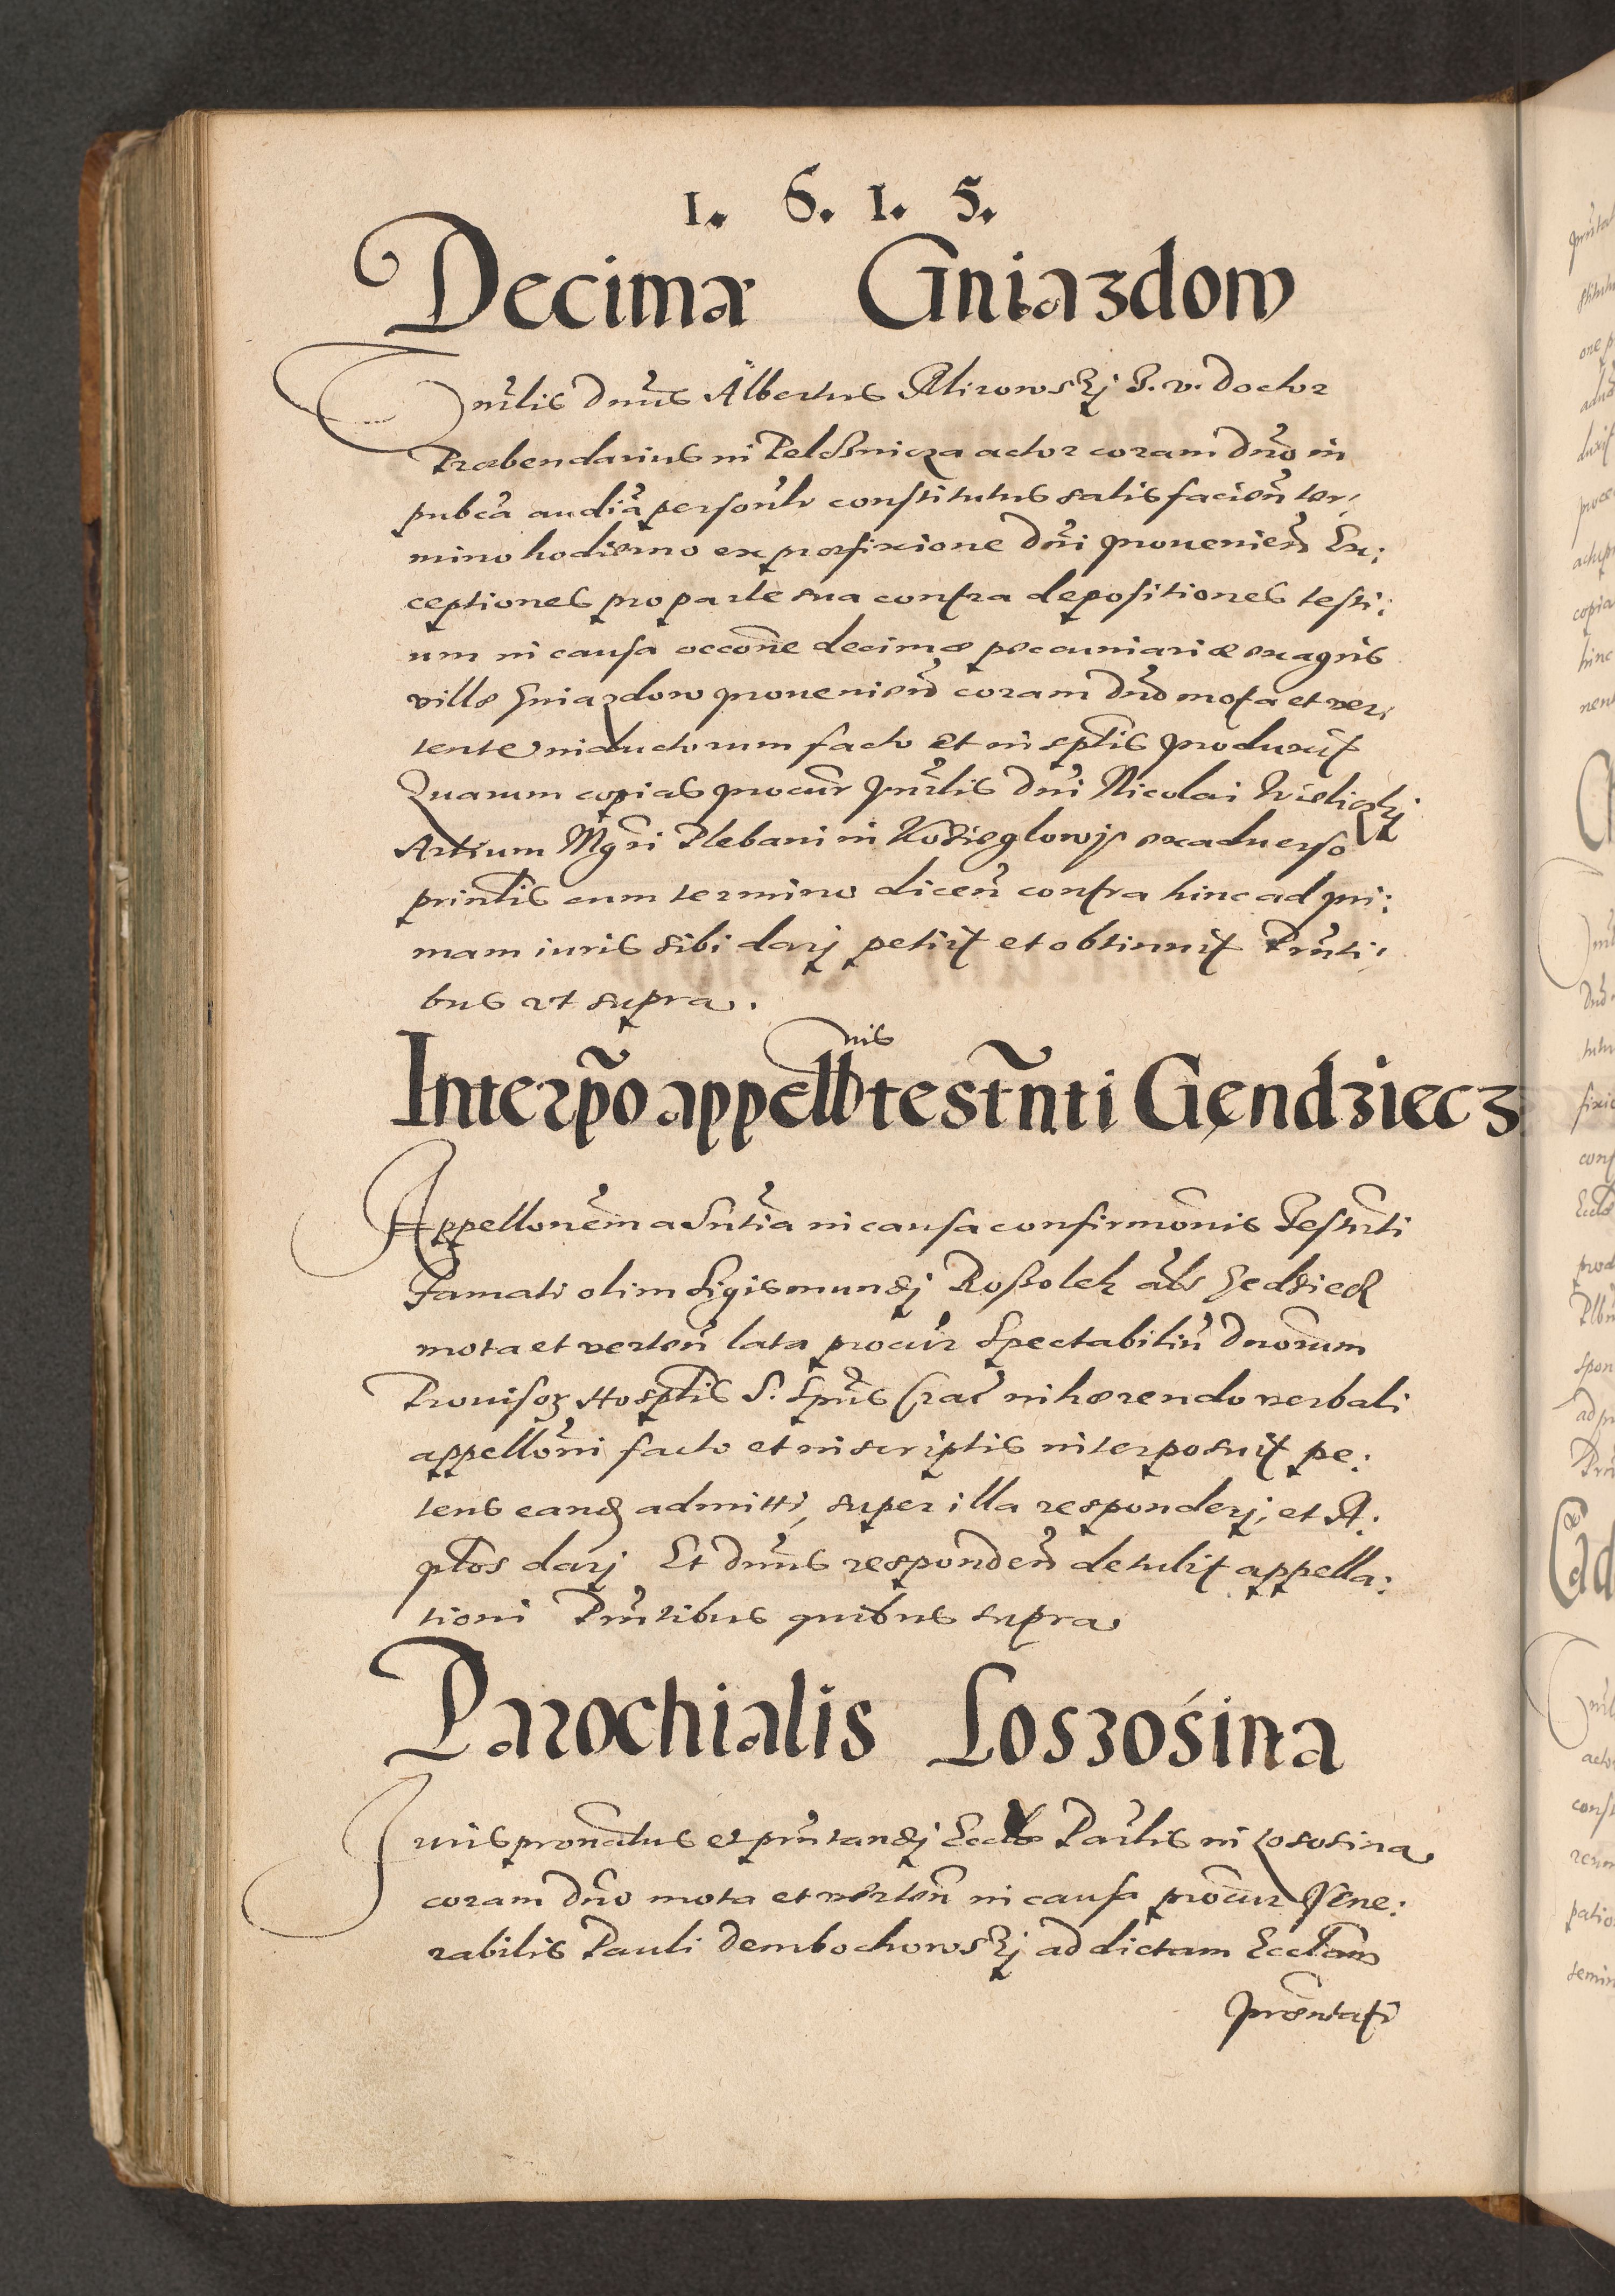 1. 6. 1. 5.
Decimæ Gniazdow
Dnus Albertus J. v. Doctor
Præbendarius in Pelcznicza actor coram Dno in
pubca audia personlr constitutus satisfacien ter:
mino hodierno ex præfixione Dni provenien Ex:
ceptiones pro parte sua contra depositiones testi:
um in causa occone decimæ pecuniariæ ex agris
villæ Gniazdow provenien coram Dno mota et ver:
tente inductorum facto et in sptis produxit
Quarum copias procur Dni Nicolai Wieliczki
Artium Mgri Plebani in Kozieglowj ex adverso
prinlis cum termino dicen contra hinc ad pri:
mam iuris sibi darj petiit et obtinuit Prnti:
bus vt supra.
Interpo appellnis testnti Gendziecz
Appellonem a Sntia in causa confirmonis Testnti
Famati olim Sigismundj Roszolek als Gedziecz
mota et verten lata procur Spectabiliu Dnorum
Provisor Hosptlis S. Spūs Crac inhærendo verbali
appelloni facto et in scriptis interposuit pe:
tens eand admitti, super illa responderj, et A:
ptos darj Et Dnus responden detulit appella:
tioni Prntibus quibus supra
Parochialis Loszośina
Juris pronatus et prntandj Eccłæ Parlis in Lososina
coram Dno mota et verten in causa procur Vene:
rabilis Pauli Dembochowskj ad dictam Ecclam
præntati